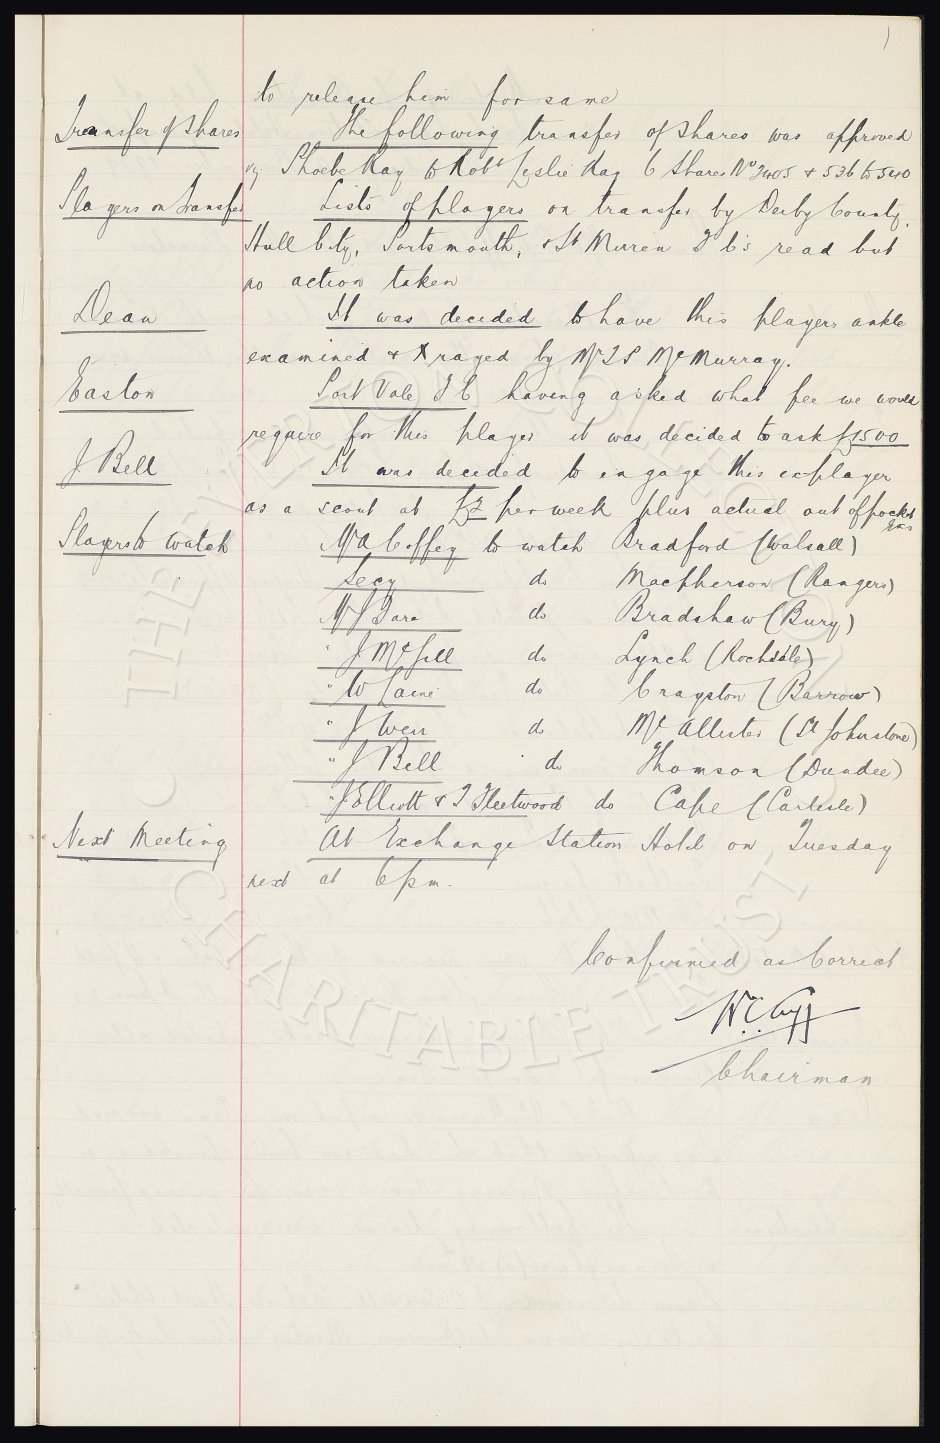 to release him for same
Transfer of Shares The following transfer of shares was approved
vz Phoebe Kay to Robt Leslie Kay 6 Shares Nº 2405 & 536 to 540
Players on Transfer Lists of players on transfer by Derby County,
Hull City, Portsmouth, & St Mirren F C's read but
no action taken
Dean It was decided to have this players ankle
examined & X rayed by Mr T P McMurray.
Easton Port Vale F C having asked what fee we would
require for this player it was decided to ask £1500
J Bell It was decided to engage this explayer
as a scout at £2 per week plus actual out of pocket
exs
Players to Watch Mr A Coffey to watch Bradford (Walsall)
Secy do MacPherson (Rangers)
Mr J do Bradshaw (Bury)
" J McGill do Lynch (Rochdale)
" W do Crayston (Barrow)
" J Weir do McAllister (St Johnstone)
" J Bell do Thomson (Dundee)
" J Elliott & T Fleetwood do Cape (Carlisle)
Next Meeting At Exchange Station Hotel on Tuesday
next at 6 pm.
Confirmed as Correct
W C Cuff
Chairman
© THE EVERTON COLLECTION
CHARITABLE TRUST